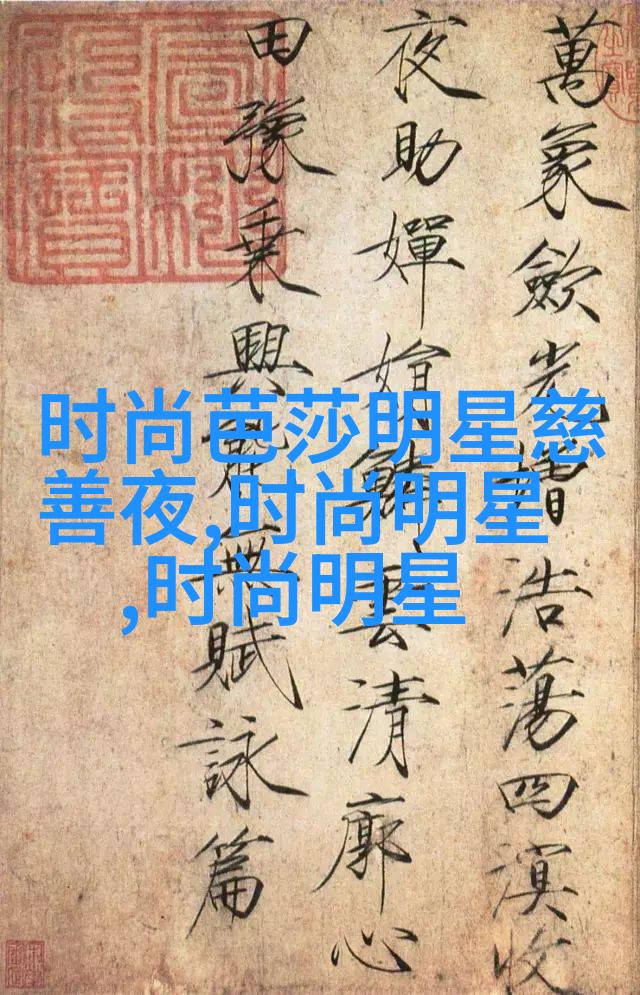 萬象歛光增浩蕩四溟收
夜助嬋娟鱗雲清廓心
田豫乗興能無賦詠篇
时尚芭莎明星慈
善夜,时尚明星
,时尚明星